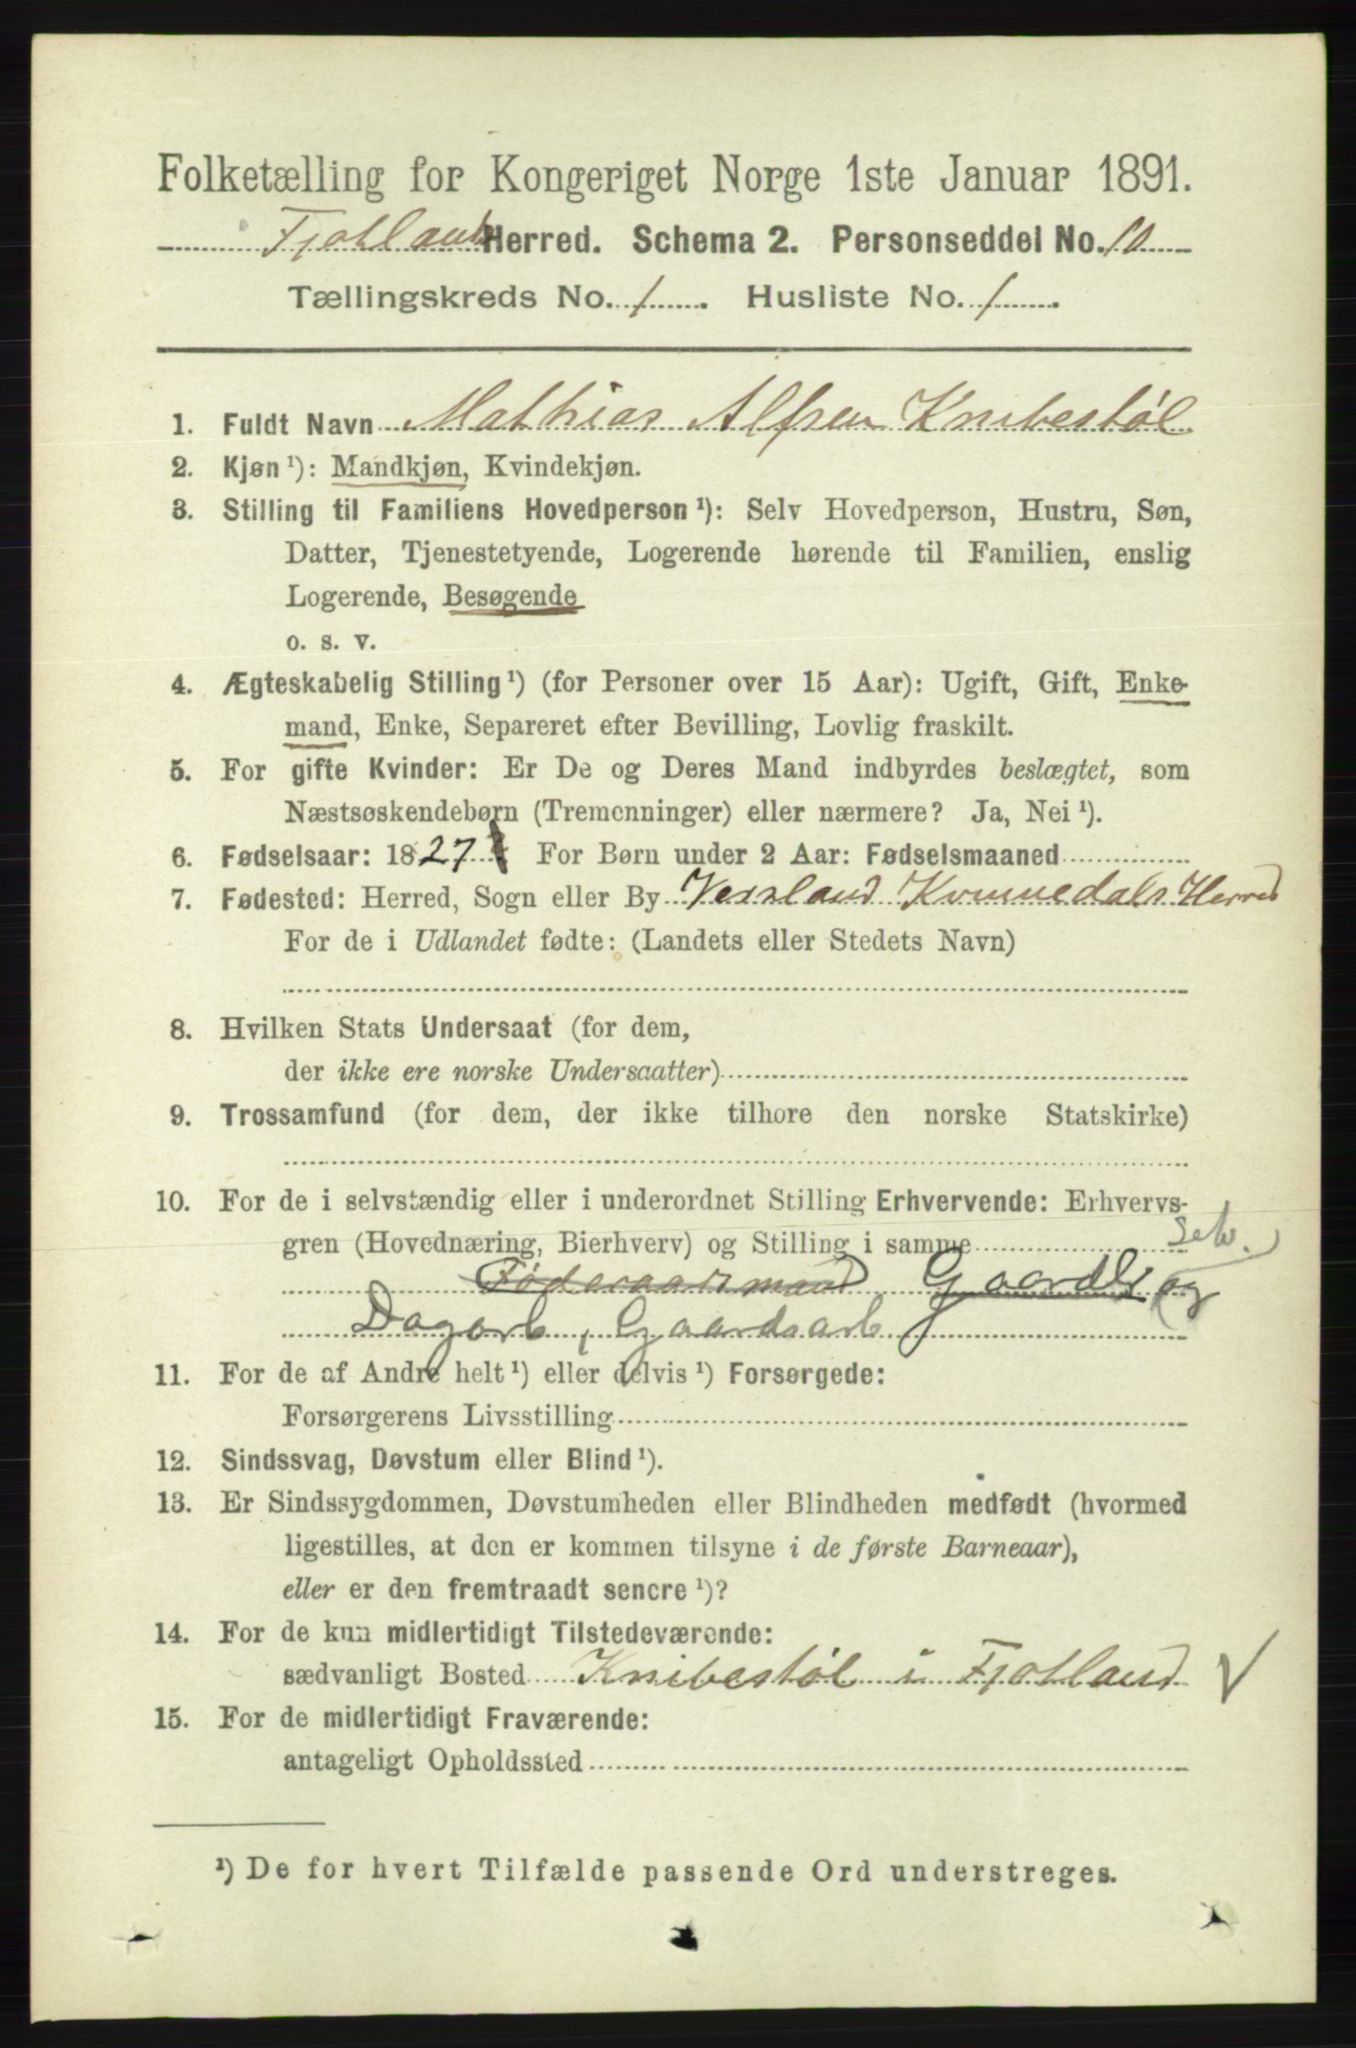 Folketælling for Kongeriget Norge 1ste Januar 1891.
Fjotland Herred. Schema 2. Personseddel No. 10
Tællingskreds No. 1. Husliste No. 1.
1. Fuldt Navn Mathias Alfsen Knibestøl
2. Kjøn ¹): Mandkjøn, Kvindekjøn.
3. Stilling til Familiens Hovedperson ¹): Selv Hovedperson, Hustru, Søn,
Datter, Tjenestetyende, Logerende hørende til Familien, enslig
Logerende, Besøgende
o. s. v.
4. Ægteskabelig Stilling ¹) (for Personer over 15 Aar): Ugift, Gift, Enke-
mand, Enke, Separeret efter Bevilling, Lovlig fraskilt.
5. For gifte Kvinder: Er De og Deres Mand indbyrdes beslægtet, som
Næstsøskendebørn (Tremenninger) eller nærmere? Ja, Nei ¹).
6. Fødselsaar: 1827 For Børn under 2 Aar: Fødselsmaaned
7. Fødested: Herred, Sogn eller By Versland Kvinnedals Herred
For de i Udlandet fødte: (Landets eller Stedets Navn)
8. Hvilken Stats Undersaat (for dem,
der ikke ere norske Undersaatter)
9. Trossamfund (for dem, der ikke tilhøre den norske Statskirke)
10. For de i selvstændig eller i underordnet Stilling Erhvervende: Erhvervs-
gren (Hovednæring, Bierhverv) og Stilling i samme selv.
Føderaadsmand Gaardbr og
Dagarb, Gaardsarb
11. For de af Andre helt ¹) eller delvis ¹) Forsørgede:
Forsørgerens Livsstilling
12. Sindssvag, Døvstum eller Blind ¹).
13. Er Sindssygdommen, Døvstumheden eller Blindheden medfødt (hvormed
ligestilles, at den er kommen tilsyne i de første Barneaar),
eller er den fremtraadt senere ¹)?
14. For de kun midlertidigt Tilstedeværende:
sædvanligt Bosted Knibestøl i Fjotland
15. For de midlertidigt Fraværende:
antageligt Opholdssted
¹) De for hvert Tilfælde passende Ord understreges.